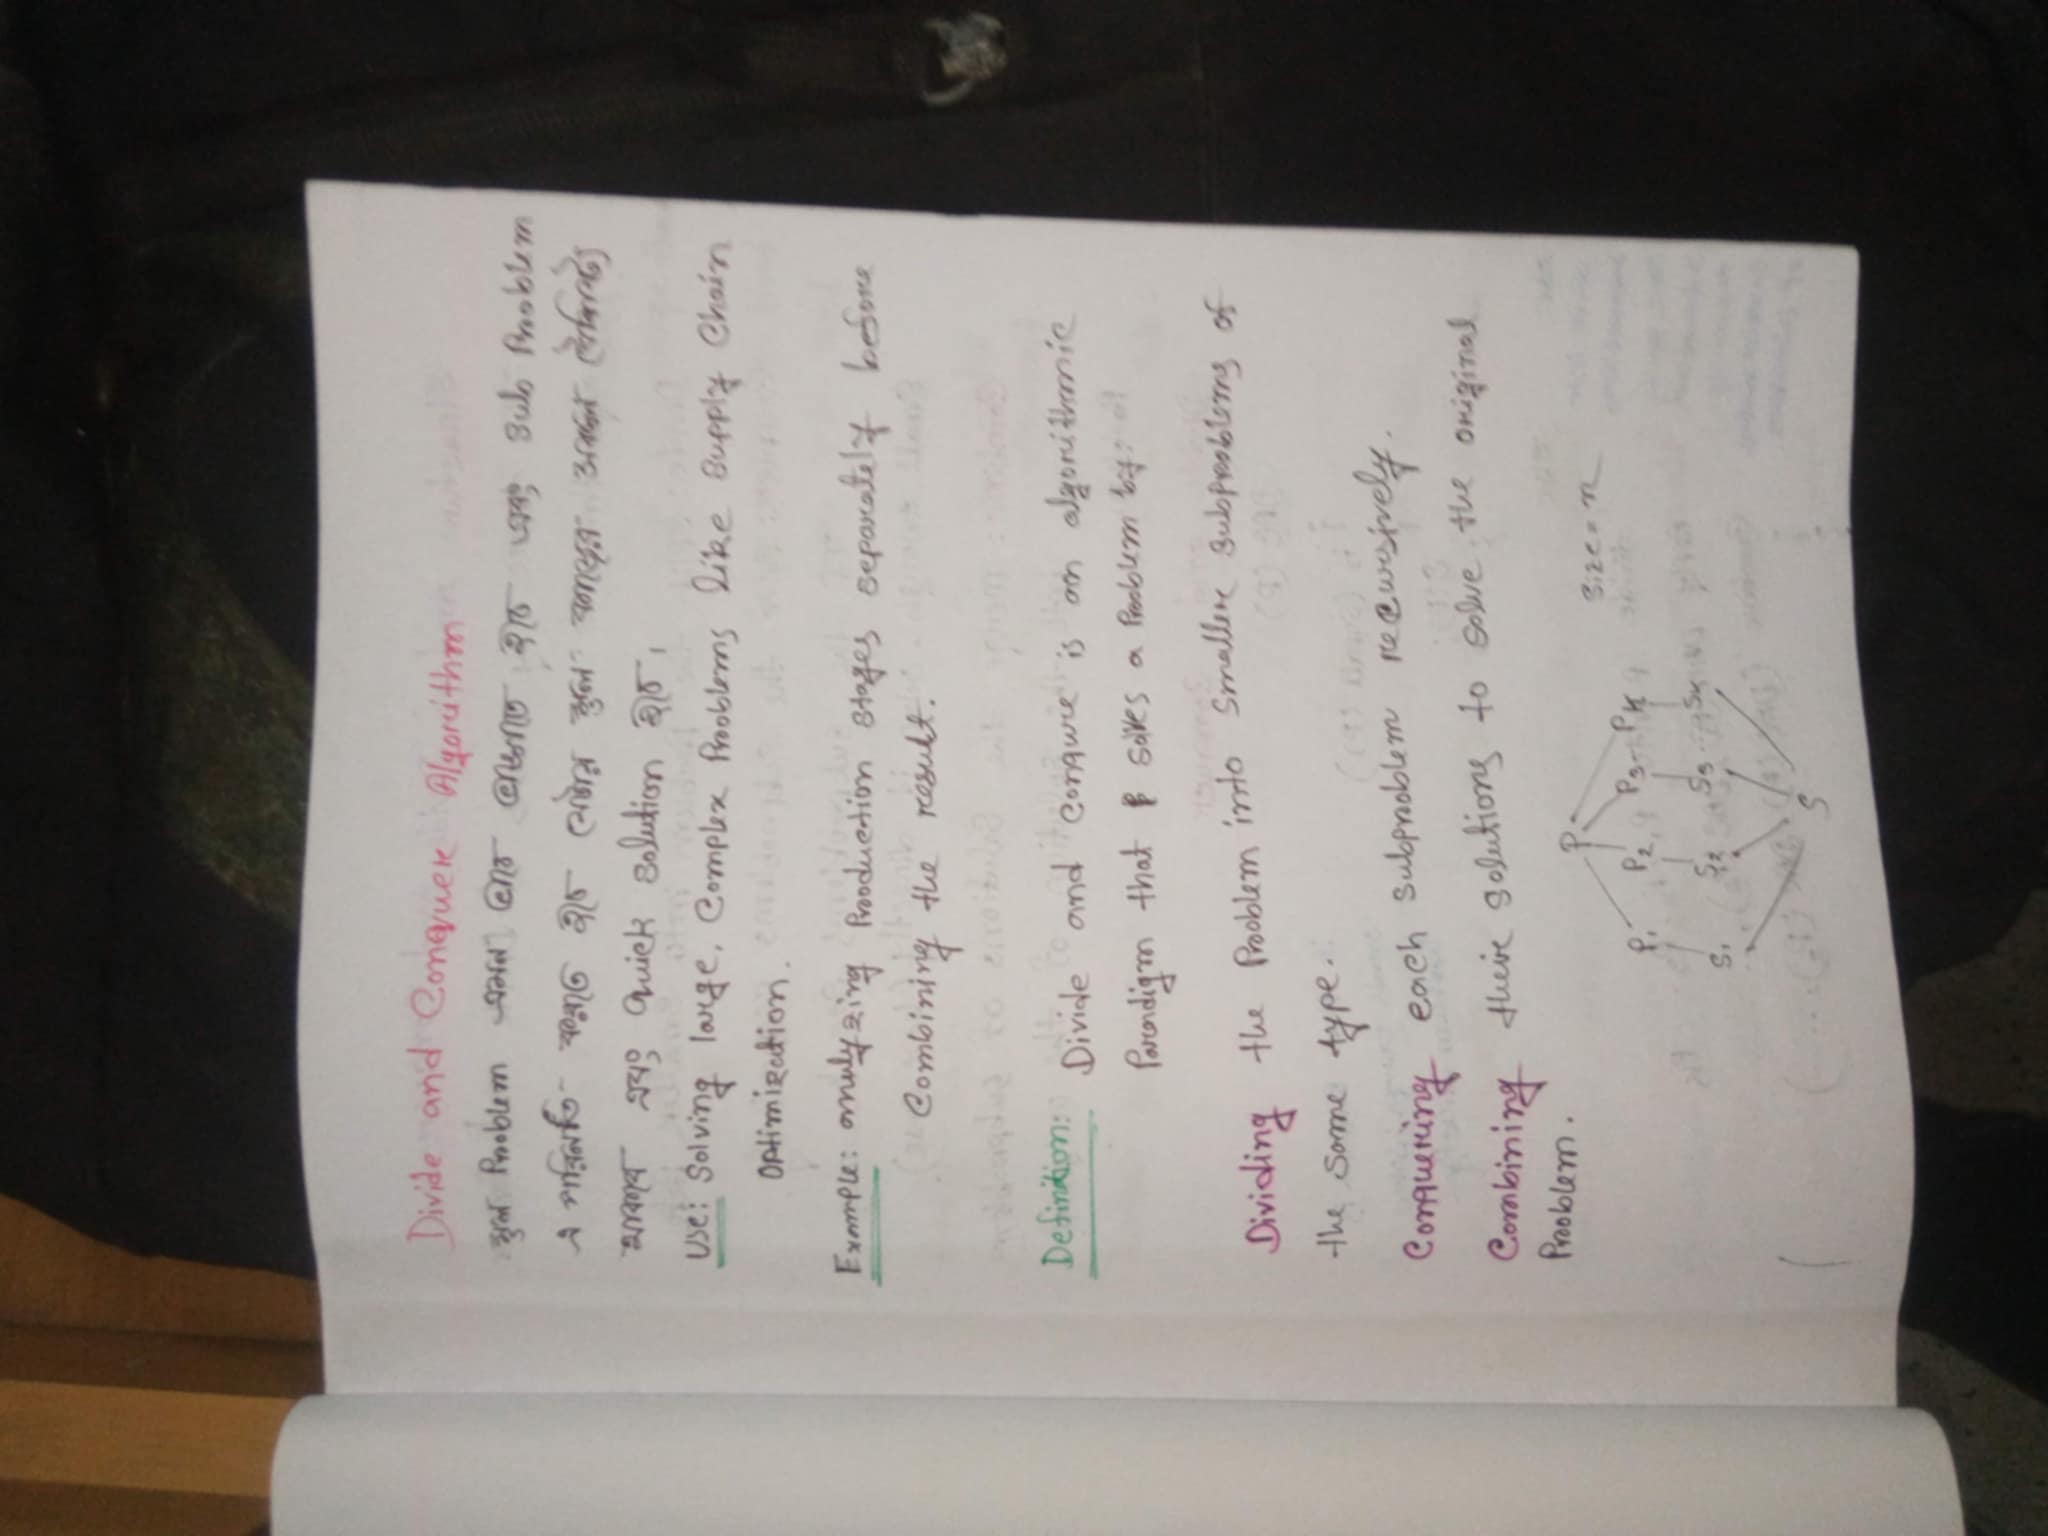 Divide and Conquer Algorithm
মুল Problem এমন ভাবে ভাঙ্গাতে হবে এবং Sub Problem
এ পরিনতি করতে হবে যেটার মুল কাজের মতন বৈশিষ্ট্য
থাকবে এবং Quick Solution হবে।
Use: Solving large, Complex Problems like Supply Chain
Optimization.
Example: analyzing Production stages separately before
Combining the result.
Definition: Divide and Conque is an algorithmic
Paradigm that solves a Problem by:
Dividing the Problem into smaller subproblems of
the same type.
Conquering each subproblem recursively.
Combining their solutions to solve the original
Problem.
P Size = n
P1 P2 P3 - PK
S1 S2 S3 ... SK
S